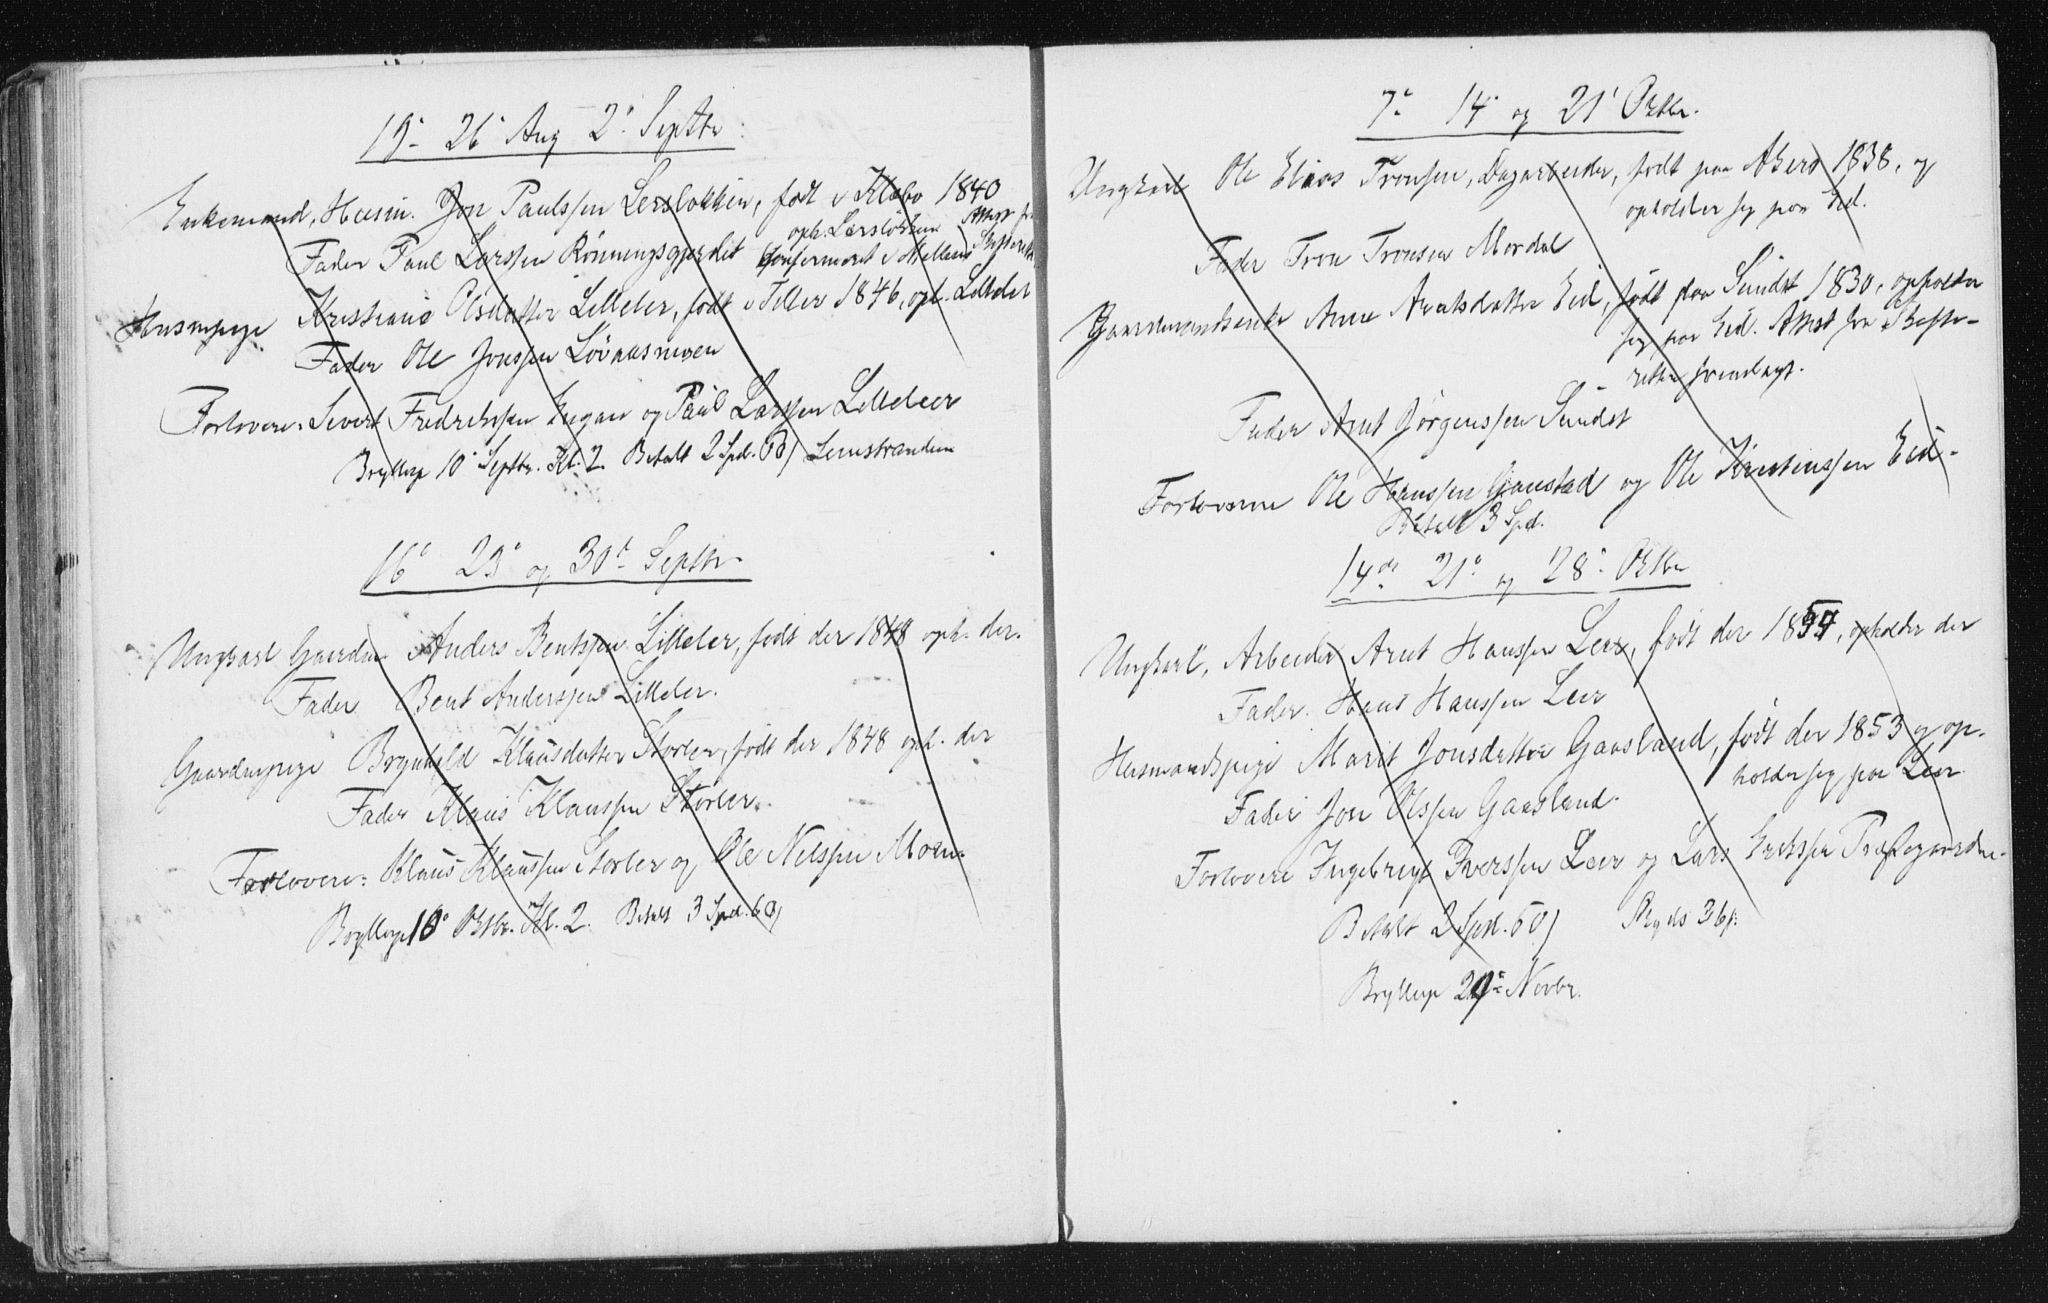 19de 26de Aug 2den Septbr:
Enkemand, Husm. Jon Paulssen Lersløkken, født i Klæbo 1840
oph. Lersløkken Attest fra
Fader Paul Larssen Rönningsgjerdet konfirmeret i Melhus Skifteret
Husmpige Kristiane Olsdatter Lilleler, født i Tiller 1846, oph. Lilleler
Fader Ole Jonssen Lövaasmoen
Forlovere: Sivert Fredrikssen Hegan og Paul Larssen Lilleleer
Bryllup 10de Septbr. Kl. 2. Betalt 2 Spd. 60) Leinstranden
16de 23de og 30te Septbr
Ungkarl Gaardm. Anders Bentssen Lilleler, født der 1848 oph. der.
Fader Bent Anderssen Lilleler.
Gaardmpige Brynhild Klausdatter Storler, født der 1848 oph. der
Fader Klaus Klaussen Storler.
Forlovere: Klaus Klaussen Storler og Ole Nilssen Moen.
Bryllup 10de Oktbr. Kl. 2. Betalt 3 Spd. 60)
7de 14de og 21de Oktbr.
Ungkarl Ole Elias Tronsen, Dagarbeider, født paa Akerø 1838, og
opholder sig paa Eid.
Fader Tron Tronsen Mordal
Gaardmandsenke Anne Arntsdatter Eid, født paa Sundet 1830, opholder
sig paa Eid. Attest fra Skifte-
retten fremlagt.
Fader Arnt Jørgenssen Sundet
Forlovere Ole Hanssen Gaustad og Ole Kristenssen Eid.
Betalt 3 Spd.
14de 21de og 28de Oktbr
Ungkarl, Arbeider Arnt Hanssen Leer, født der 1854, opholder der
Fader. Hans Hanssen Leer
Husmandspige Marit Jonsdatter Gaasland, født der 1853 og op-
holder sig paa Leer
Fader Jon Olssen Gaasland.
Forlovere Ingebrigt Iverssen Leer og Lars Erikssen Præstegaarden.
Betalt 2 Spd. 60) 36
Bryllup 29de Novbr.